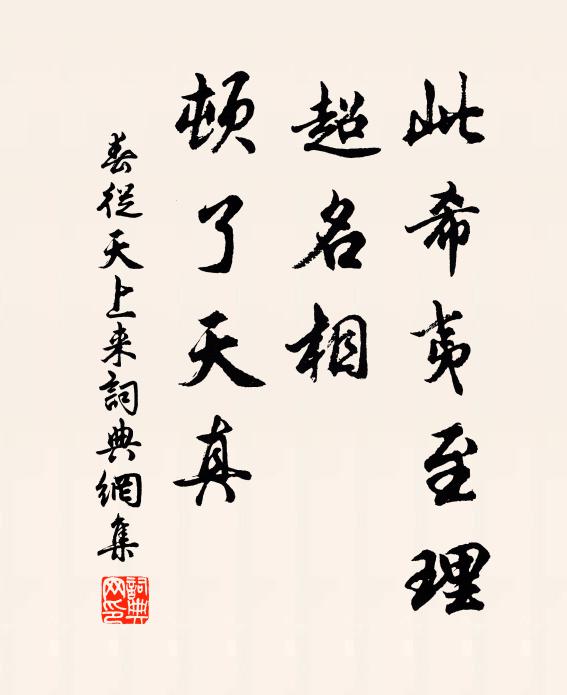 此希夷至理
超名相
頓了天真
春從天上来詞典網集
詞典網印